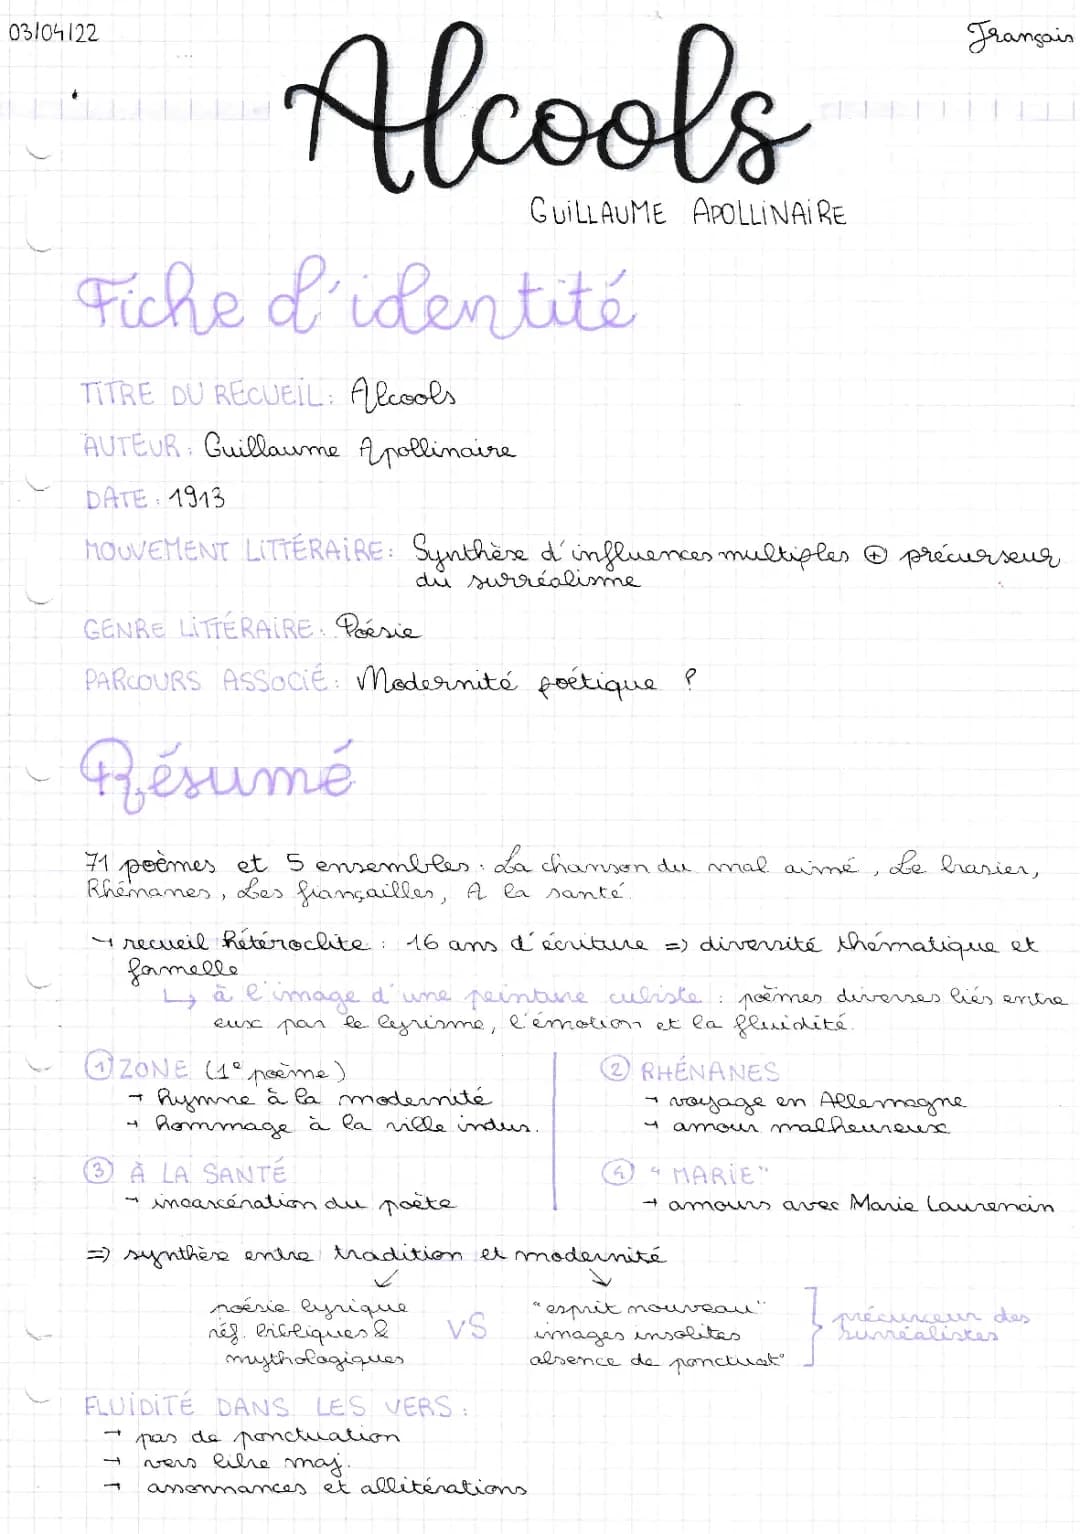 03/04/22
Français
Alcools
GUILLAUME APOLLINAIRE
Fiche d'identité
TITRE DU RECUEIL : Alcools
AUTEUR : Guillaume Apollinaire
DATE : 1913
MOUVEMENT LITTÉRAIRE : Synthèse d'influences multiples ⊕ précurseur
du surréalisme
GENRE LITTÉRAIRE : Poésie
PARCOURS ASSOCIÉ : Modernité poétique ?
Résumé
71 poèmes et 5 ensembles : La chanson du mal aimé, Le brasier,
Rhénanes, Les fiançailles, A la santé.
→ recueil hétéroclite : 16 ans d'écriture => diversité thématique et
formelle
↳ à l'image d'une peinture cubiste : poèmes diverses liés entre
eux par le lyrisme, l'émotion et la fluidité.
① ZONE (1° poème)
→ hymne à la modernité
→ hommage à la ville indus.
② RHÉNANES
→ voyage en Allemagne
→ amour malheureux
③ À LA SANTÉ
→ incarcération du poète
④ "MARIE"
→ amours avec Marie Laurencin
=> synthèse entre tradition et modernité
poésie lyrique
réf. bibliques &
mythologiques
VS
"esprit nouveau"
images insolites
absence de ponctuat°
précurceur des
surréalistes
FLUIDITÉ DANS LES VERS :
→ pas de ponctuation
→ vers libre maj.
→ assonnances et allitérations